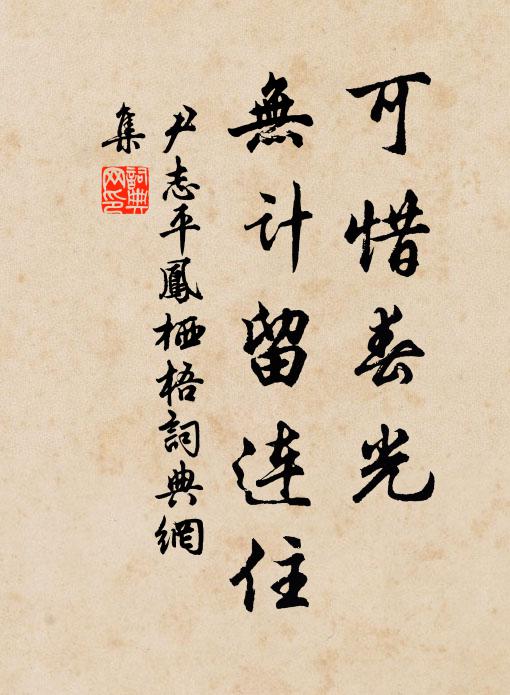 可惜春光
無计留連住
尹志平鳳栖梧詞典網
集
詞典
网印